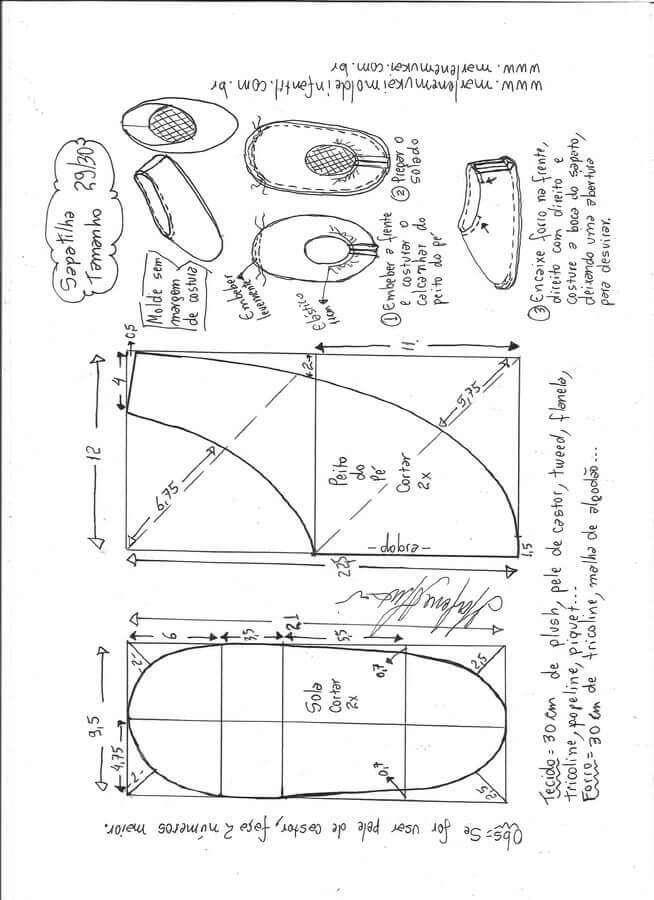 Sapatilha
Tamanho 29/30
Molde sem
margem
de costura
Embeber
levemente
Elástico
1cm
① Embeber a frente
e costurar o
calcanhar do
peito do pé
② Prepar o
solado
③ Encaixe forro na frente,
direito com direito e
costure a boca do sapato,
deixando uma abertura
para desvirar.
www.marlenemukaimoldeinfantil.com.br
www.marlenemukai.com.br
12
4
0,5
6,75
2
11
5,75
Peito
do
Pé
Cortar
2x
-dobra-
22,5
1,5
21
6
3,5
5,5
9,5
4,75
2
2
2,5
2,5
0,7
0,7
Sola
Cortar
2x
Tecido = 30 cm de plush, pele de castor, tweed, flanela,
tricoline, popeline, piquet...
Forro = 30 cm de tricoline, malha de algodão...
Obs = Se for usar pele de castor, faça 2 números maior.